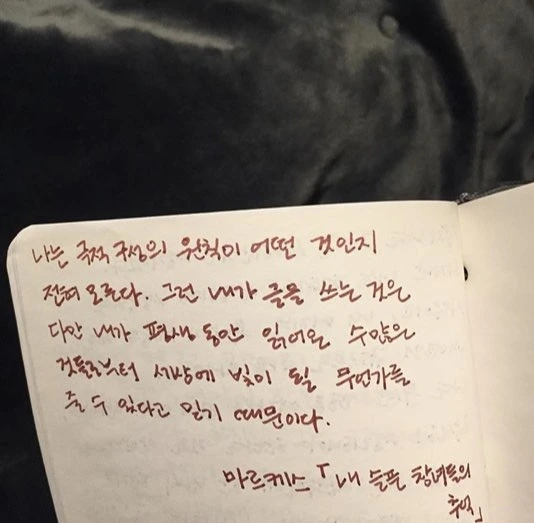 나는 극적 구성의 원칙이 어떤 것인지
전혀 모른다. 그런 내가 글을 쓰는 것은
다만 내가 평생 동안 읽어온 수많은
것들로부터 세상에 빛이 될 무언가를
줄 수 있다고 믿기 때문이다.
마르케스 「내 슬픈 창녀들의
추억」